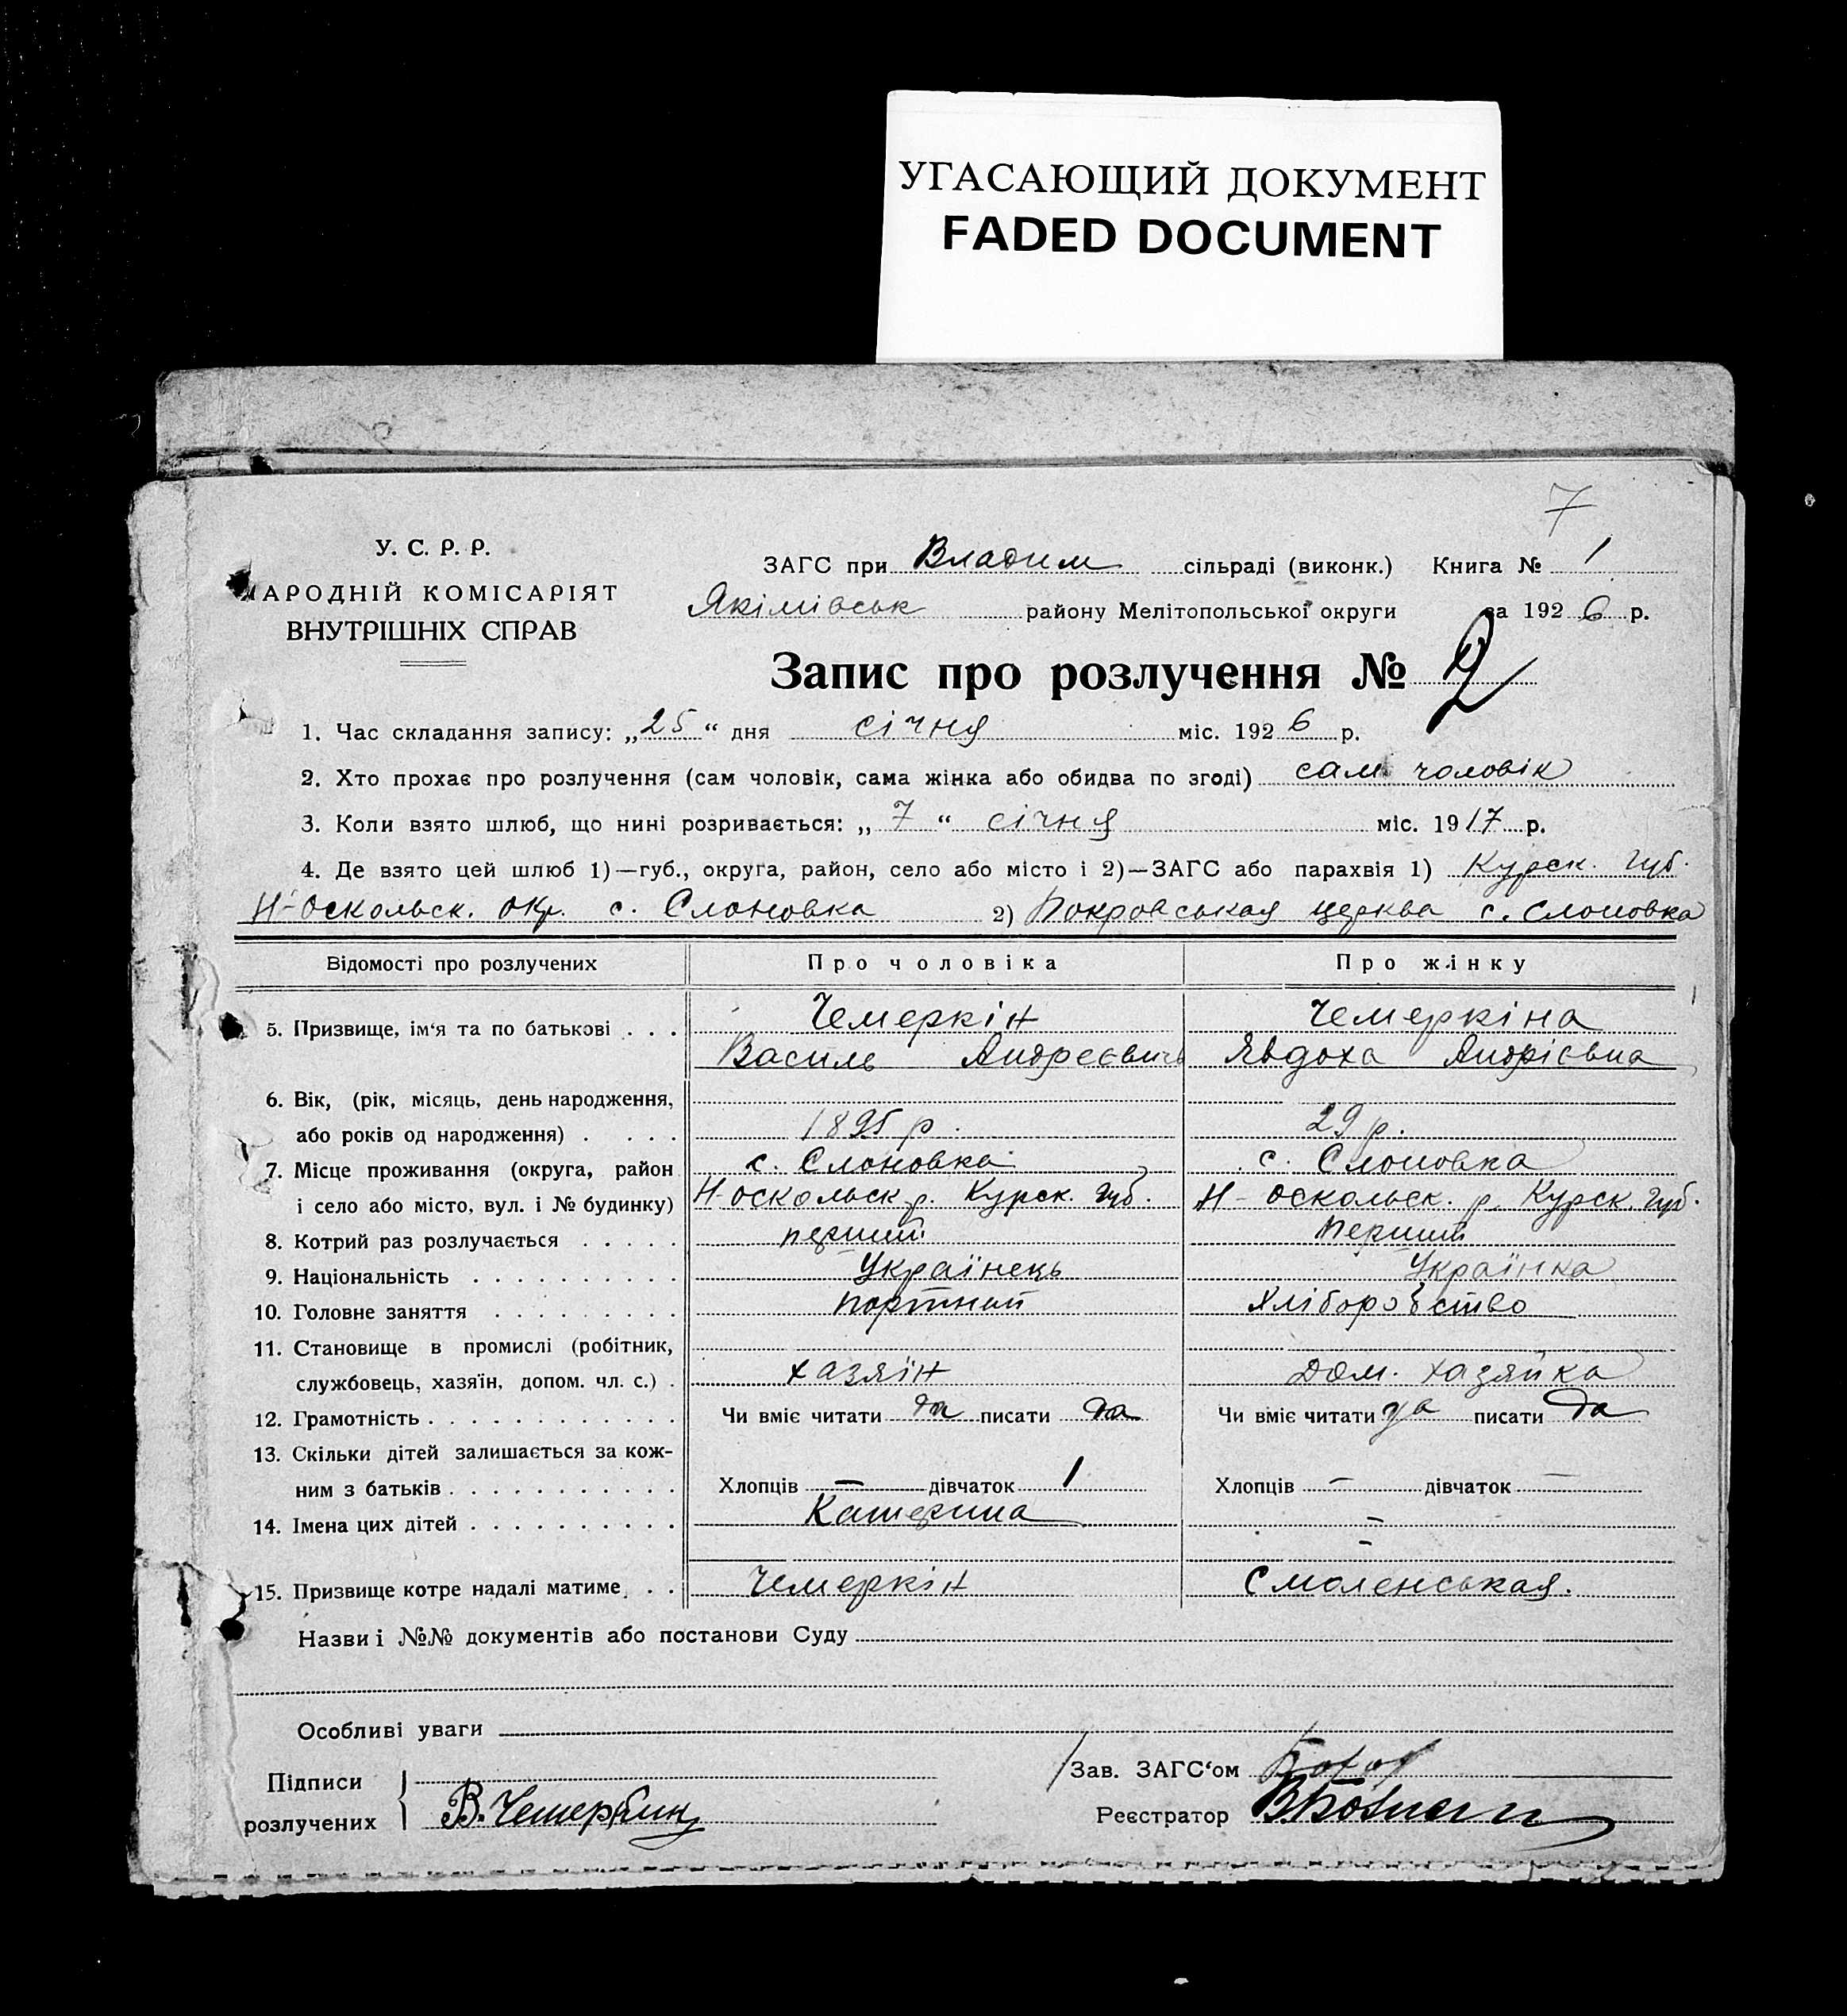 УГАСАЮЩИЙ ДОКУМЕНТ
FADED DOCUMENT
7
У. С. Р. Р.
НАРОДНІЙ КОМІСАРІЯТ
ВНУТРІШНІХ СПРАВ
ЗАГС при Владим сільраді (виконк.) Книга № 1
Якімівськ району Мелітопольської округи за 1926 р.
Запис про розлучення № 2
1. Час складання запису: „25“ дня січня міс. 1926 р.
2. Хто прохає про розлучення (сам чоловік, сама жінка або обидва по згоді) сам чоловік
3. Коли взято шлюб, що нині розривається: „7“ січня міс. 1917 р.
4. Де взято цей шлюб 1)—губ., округа, район, село або місто і 2)—ЗАГС або парахвія 1) Курск. губ.
Н-Оскольск. окр. с. Слоновка 2) Покровськая церква с. Слоновка
Відомості про розлучених Про чоловіка Про жінку
5. Призвище, ім‘я та по батькові . . . Чемеркін Чемеркіна
Василь Андреєвичь Явдоха Андрієвна
6. Вік, (рік, місяць, день народження,
або років од народження) . . . . 1895 р. 29 р.
7. Місце проживання (округа, район с. Слоновка с. Слоновка
і село або місто, вул. і № будинку) Н-Оскольск р. Курск. губ. Н-Оскольск. р. Курск. губ.
8. Котрий раз розлучається . . . . . перший перший
9. Національність . . . . . . . . . . Українець Українка
10. Головне заняття . . . . . . . . . портний Хліборобство
11. Становище в промислі (робітник,
службовець, хазяїн, допом. чл. с.) . хазяїн дом. хазяйка
12. Грамотність . . . . . . . . . . . . Чи вміє читати да писати да Чи вміє читати да писати да
13. Скільки дітей залишається за кож-
ним з батьків . . . . . . . . . . . Хлопців — дівчаток 1 Хлопців — дівчаток —
14. Імена цих дітей . . . . . . . . . . Катерина –
–
15. Призвище котре надалі матиме . . Чемеркін Смоленськая.
Назви і №№ документів або постанови Суду
Особливі уваги
Підписи
розлучених В. Чемеркин
Зав. ЗАГС‘ом
Реєстратор